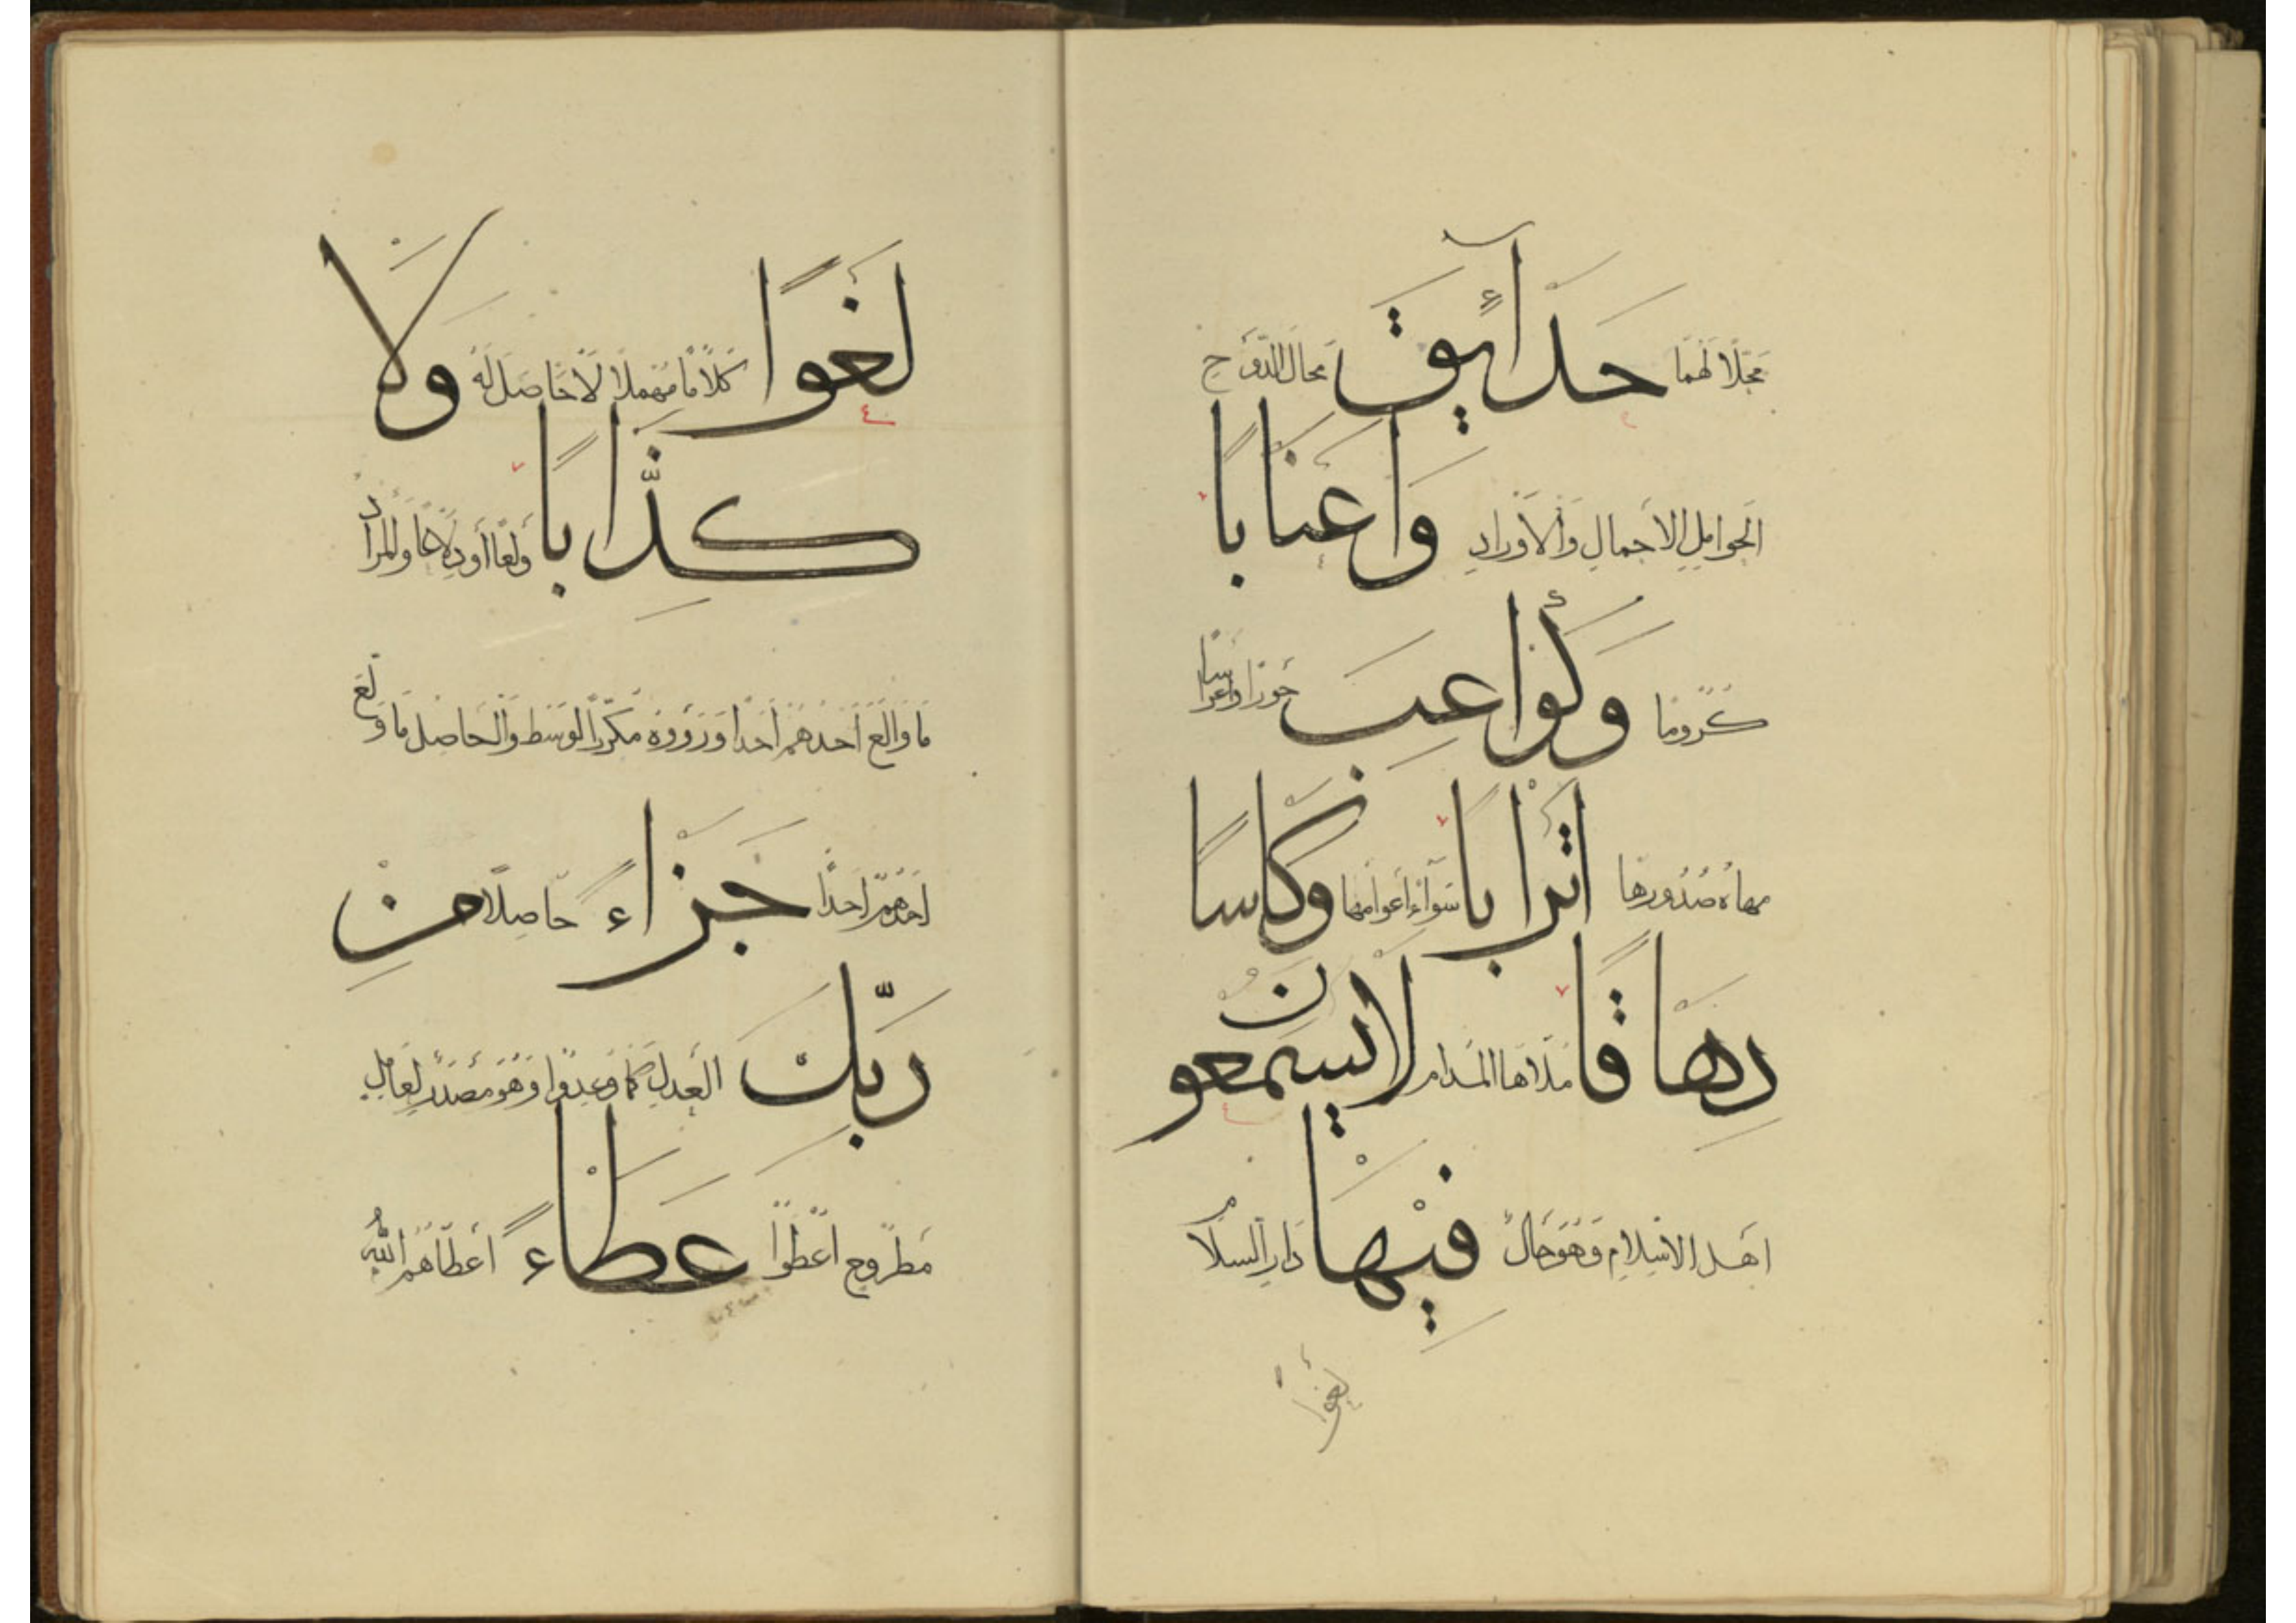 مَحَلًّا لَهُمَا حَدَآئِقَ مَحَالَّ الدَّوْحِ
الْحَوَامِلِ الْأَحْمَالِ وَالْأَوْرَادِ وَأَعْنَابًا
كُرُومًا وَكَوَاعِبَ حُورًا وَأَعْرَاسًا
صُدُورِهَا أَتْرَابًا سَوَاءً أَعْوَامُهَا وَكَأْسًا
دِهَاقًا مَلَأَهَا الْمُدَامُ لَا يَسْمَعُونَ
أَهْلُ الْإِسْلَامِ وَهُوَ حَالٌ فِيهَا دَارِ السَّلَامِ
لَغْوًا
لَغْوًا كَلَامًا مُهْمَلًا لَا حَاصِلَ لَهُ وَلَا
كِذَّابًا وَلْعًا أَوْ وَالْمُرَادُ
مَا وَالَعَ أَحَدُهُمْ أَحَدًا وَرَوَوْهُ مُكَرَّرَ الْوَسَطِ وَالْحَاصِلُ مَا وَلَّعَ
أَحَدُهُمْ أَحَدًا جَزَاءً حَاصِلًا مِنْ
رَبِّكَ الْعَدْلِ كَمَا وُعِدُوا وَهُوَ مَصْدَرٌ لِعَامِلٍ
مَطْرُوحٍ عَطَاءً أَعْطَاهُمُ اللَّهُ